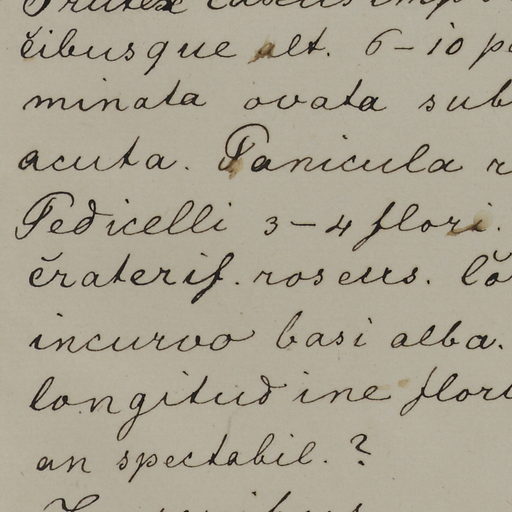 Frutex
čibusque alt. 6-10
minata ovata sub
acuta. Panicula
Pedicelli 3-4 flori.
čraterif. roseus.
incurvo basi alba.
longitudine flori
an spectabil. ?